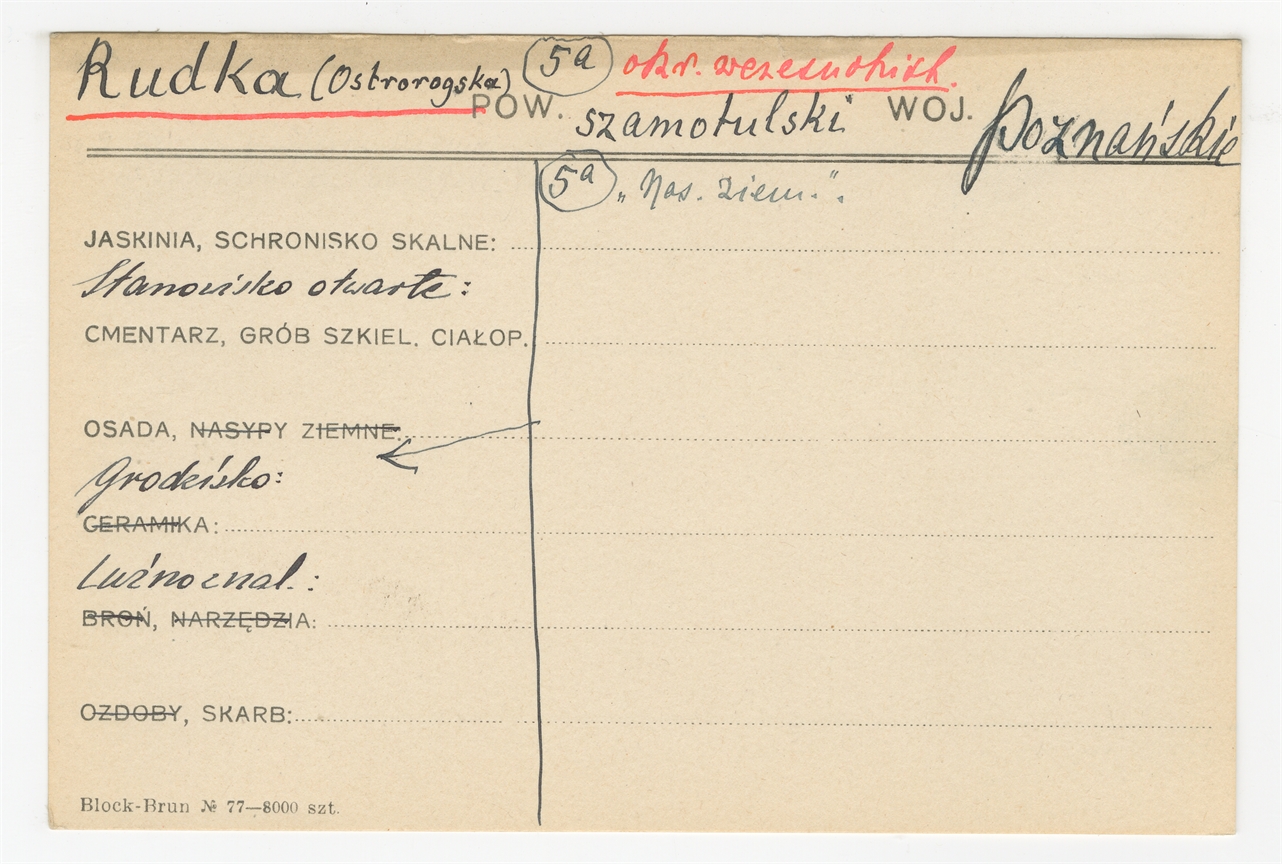 Rudka (Ostrorogska) 5a okr. wczesnohist.
POW. szamotulski WOJ. Poznańskie
5a „Nas. ziem.".
JASKINIA, SCHRONISKO SKALNE:
Stanowisko otwarte:
CMENTARZ, GRÓB SZKIEL. CIAŁOP.
OSADA, NASYPY ZIEMNE:
Grodzisko:
CERAMIKA:
Luźno znal.:
BROŃ, NARZĘDZIA:
OZDOBY, SKARB:
Block-Brun № 77—8000 szt.